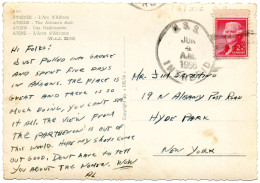 ATHENS - The Adrian's Arch
HI FOLKS!
JUST PULLED INTO GREECE
AND SPENT FIVE DAYS
IN ATHENS. THE PLACE IS
GREAT AND THERE IS SO
MUCH DOING, YOU CAN'T SEE
IT ALL. THE VIEW FROM
THE PARTHENON IS OUT OF
THIS WORLD. HOPE MY SHOTS COME
OUT GOOD. DON'T HAVE TO TELL
YOU ABOUT THE WOMEN. WOW
AL
U.S.S.
JUN
A.M.
MR. JIM SARENTINO
19 N ALBANY POST ROAD
HYDE PARK
NEW YORK